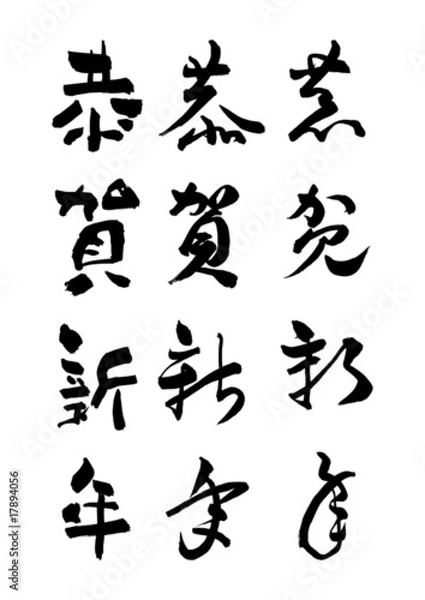 恭恭恭
賀賀賀
新新新
年年年
Adobe Stock | #17894056